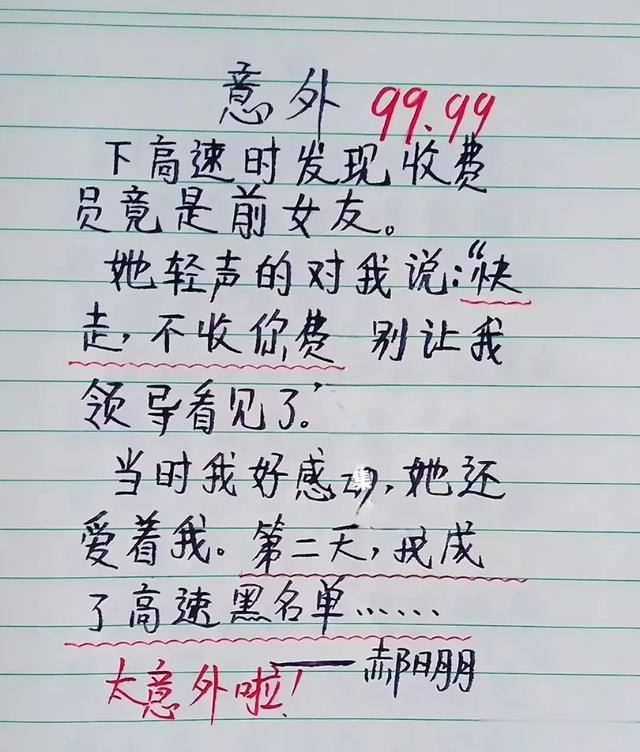 意外 99.99
下高速时发现收费
员竟是前女友。
她轻声的对我说:“快
走,不收你费 别让我
领导看见了.”
当时我好感动,她还
爱着我。第二天,我成
了高速黑名单……
——郝明朋
太意外啦!